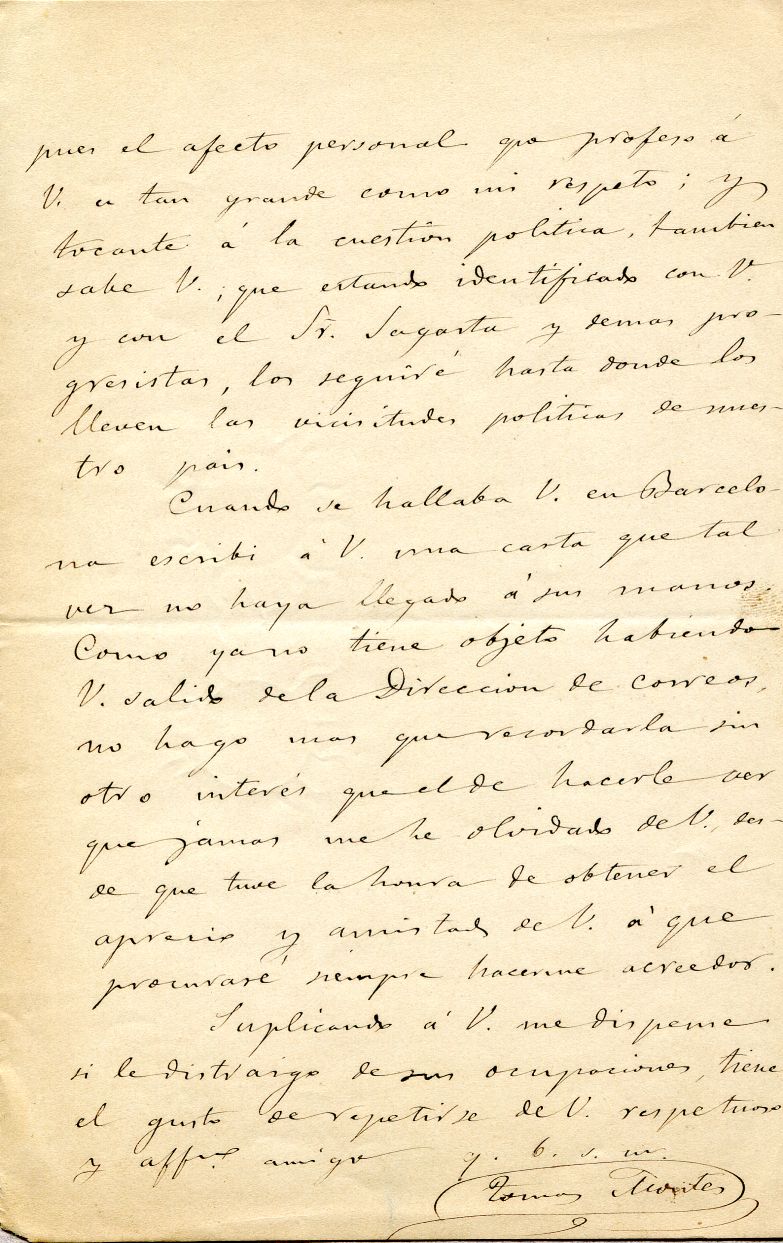 pues el afecto personal que profeso á
V. es tan grande como mi respeto; y
tocante á la cuestión politica, tambien
sabe V.; que estando identificado con V.
y con el Sr. Sagasta y demas pro-
gresistas, los seguiré hasta donde los
lleven las vicisitudes politicas de nues-
tro pais.
Cuando se hallaba V. en Barcelo-
na escribi á V. una carta que tal
vez no haya llegado á sus manos.
Como ya no tiene objeto habiendo
V. salido de la Direccion de correos,
no hago mas que recordarla sin
otro interés que el de hacerle ver
que jamas me he olvidado de V., des-
de que tuve la honra de obtener el
aprecio y amistad de V. á que
procuraré siempre hacerme acreedor.
Suplicando á V. me dispense
si le distraigo de sus ocupaciones, tiene
el gusto de repetirse de V. respetuoso
y affmo. amigo q. b. s. m.
Tomas Montes